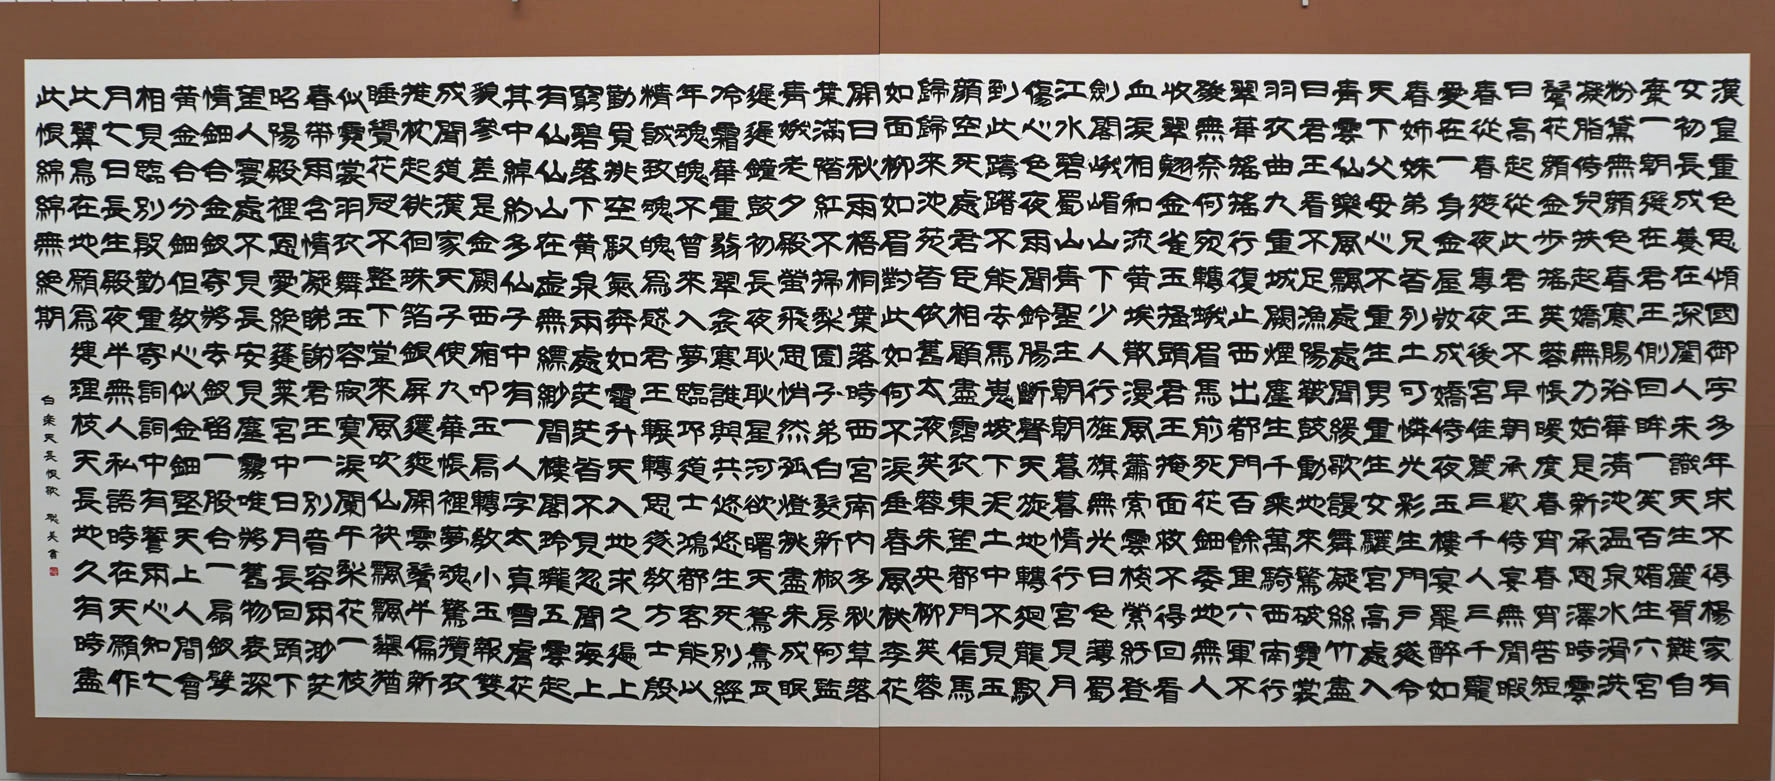 漢皇重色思傾國御宇多年求不得楊家有
女初長成養在深閨人未識天生麗質難自
棄一朝選在君王側回眸一笑百媚生六宮
粉黛無顏色春寒賜浴華清池溫泉水滑洗
凝脂侍兒扶起嬌無力始是新承恩澤時雲
鬢花顏金步搖芙蓉帳暖度春宵春宵苦短
日高起從此君王不早朝承歡侍宴無閒暇
春從春遊夜專夜後宮佳麗三千人三千寵
愛在一身金屋妝成嬌侍夜玉樓宴罷醉如
春姊妹弟兄皆列土可憐光彩生門戶遂令
天下父母心不重生男重生女驪宮高處入
青雲仙樂風飄處處聞緩歌謾舞凝絲竹盡
日君王看不足漁陽鞞鼓動地來驚破霓裳
羽衣曲九重城闕煙塵生千乘萬騎西南行
翠華搖搖行復止西出都門百餘里六軍不
發無奈何宛轉蛾眉馬前死花鈿委地無人
收翠翹金雀玉搔頭君王掩面救不得回看
血淚相和流黃埃散漫風蕭索雲棧縈紆登
劍閣峨嵋山下少人行旌旗無光日色薄蜀
江水碧蜀山青聖主朝朝暮暮情行宮見月
傷心色夜雨聞鈴腸斷聲天旋地轉迴龍馭
到此躊躇不能去馬嵬坡下泥土中不見玉
顏空死處君臣相顧盡霑衣東望都門信馬
歸歸來池苑皆依舊太液芙蓉未央柳芙蓉
如面柳如眉對此如何不淚垂春風桃李花
開日秋雨梧桐葉落時西宮南內多秋草落
葉滿階紅不掃梨園子弟白髮新椒房阿監
青娥老夕殿螢飛思悄然孤燈挑盡未成眠
遲遲鐘鼓初長夜耿耿星河欲曙天鴛鴦瓦
冷霜華重翡翠衾寒誰與共悠悠生死別經
年魂魄不曾來入夢臨邛道士鴻都客能以
精誠致魂魄為感君王輾轉思遂教方士殷
勤覓排空馭氣奔如電升天入地求之遍上
窮碧落下黃泉兩處茫茫皆不見忽聞海上
有仙仙山在虛無縹緲間樓閣玲瓏五雲起
其中綽約多仙子中有一人字太真雪膚花
貌參差是金闕西廂叩玉扃轉教小玉報雙
成聞道漢家天子使九華帳裡夢魂驚攬衣
推枕起徘徊珠箔銀屏邐迤開雲鬢半偏新
睡覺花冠不整下堂來風吹仙袂飄飄舉猶
似霓裳羽衣舞玉容寂寞淚闌干梨花一枝
春帶雨含情凝睇謝君王一別音容兩渺茫
昭陽殿裡恩愛絕蓬萊宮中日月長回頭下
望人寰處不見長安見塵霧唯將舊物表深
情鈿合金釵寄將去釵留一股合一扇釵擘
黃金合分鈿但教心似金鈿堅天上人間會
相見臨別殷勤重寄詞詞中有誓兩心知七
月七日長生殿夜半無人私語時在天願作
比翼鳥在地願為連理枝天長地久有時盡
此恨綿綿無絕期
白樂天長恨歌